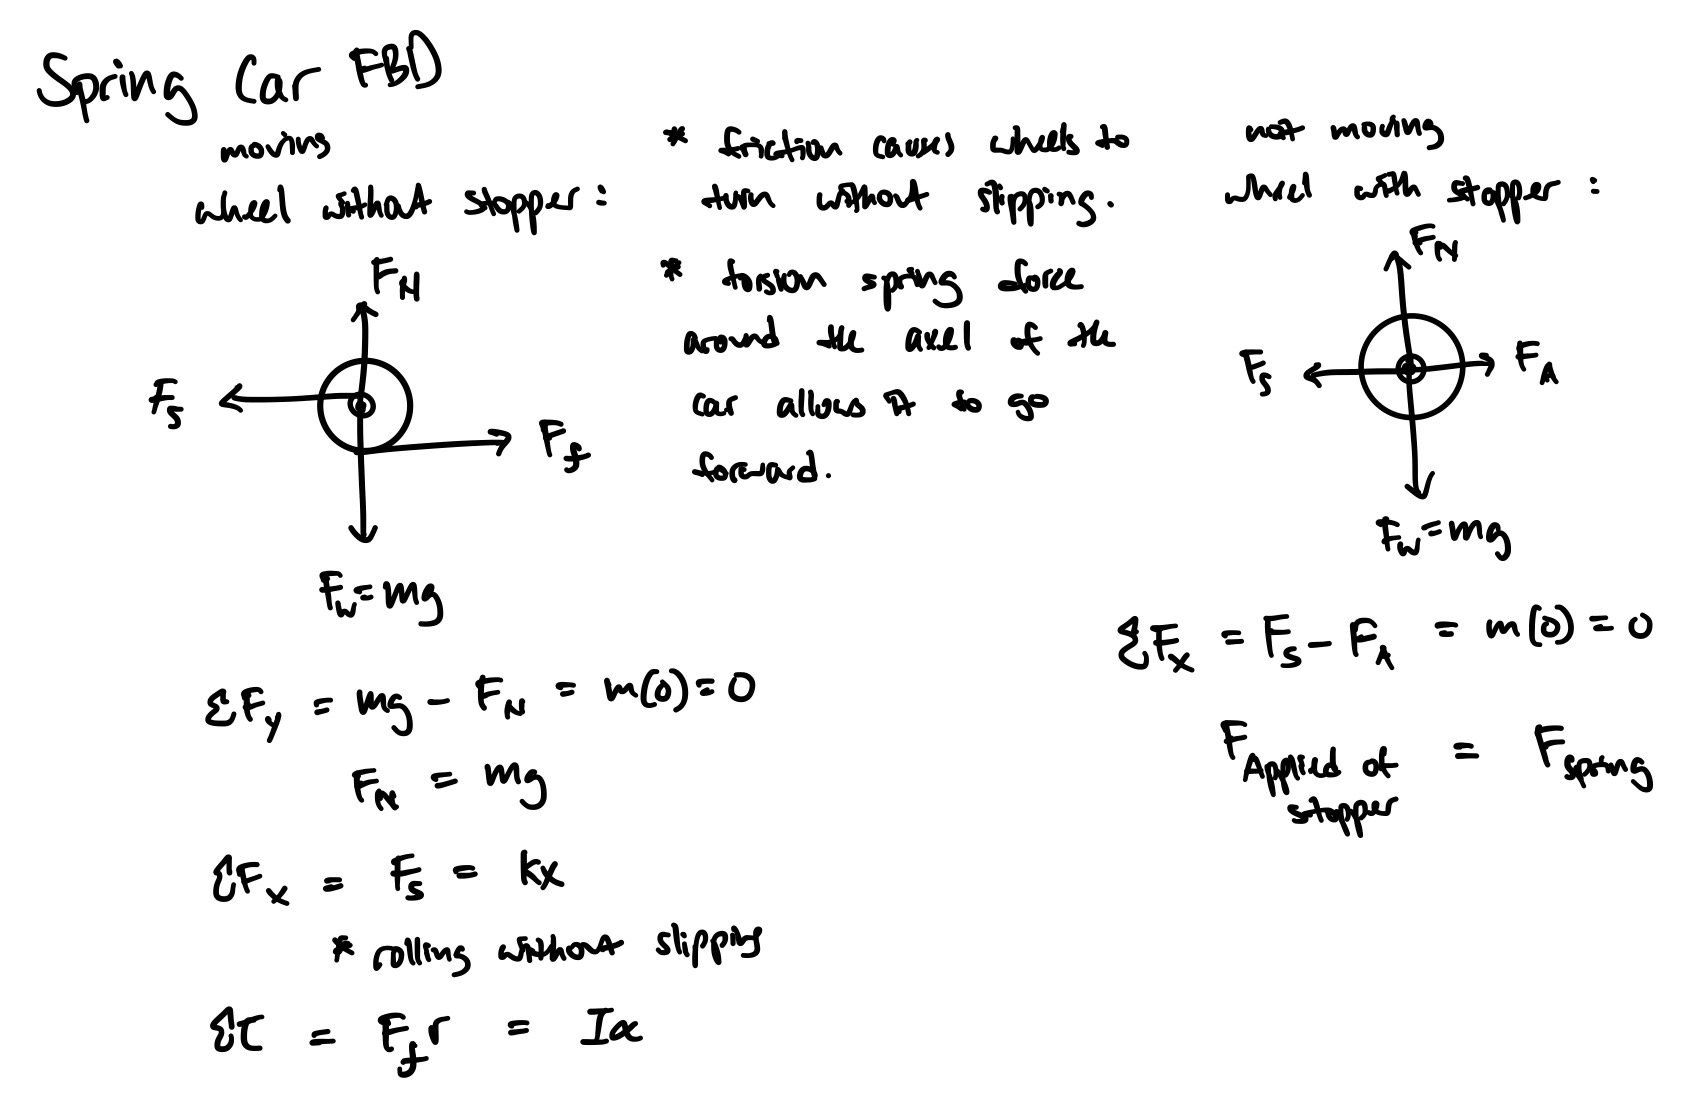 Spring Car FBD
moving
wheel without stopper:
F_N
F_s
F_f
F_w = mg
ΣF_y = mg - F_N = m(0) = 0
F_N = mg
ΣF_x = F_s = kx
* rolling without slipping
Στ = F_f r = Iα
* friction causes wheels to
turn without slipping.
* torsion spring force
around the axel of the
car allows it to go
forward.
not moving
wheel with stopper:
F_N
F_s
F_A
F_w = mg
ΣF_x = F_s - F_A = m(0) = 0
F_Applied of stopper = F_spring